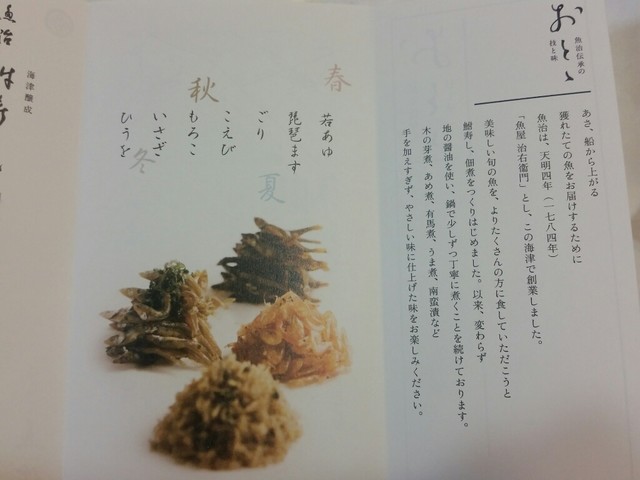 おとゝ
魚治伝承の
技と味
あさ、船から上がる
獲れたての魚をお届けするために
魚治は、天明四年(一七八四年)
「魚屋 治右衛門」とし、この海津で創業しました。
美味しい旬の魚を、よりたくさんの方に食していただこうと
鮒寿し、佃煮をつくりはじめました。以来、変わらず
地の醤油を使い、鍋で少しずつ丁寧に煮くことを続けております。
木の芽煮、あめ煮、有馬煮、うま煮、南蛮漬など
手を加えすぎず、やさしい味に仕上げた味をお楽しみください。
春
若あゆ
琵琶ます
夏
ごり
こえび
秋
もろこ
いさざ
冬
ひうを
海津醸成
魚治